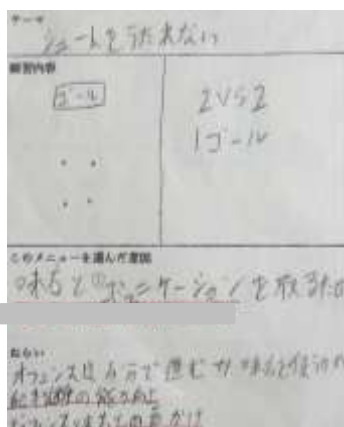 テーマ
シュートをうたれない
練習内容
ゴール
2VS2
1ゴール
このメニューを選んだ意図
味方とのコミュニケーションを取るため
ねらい
オフェンスは自分で進むか味方を使うか